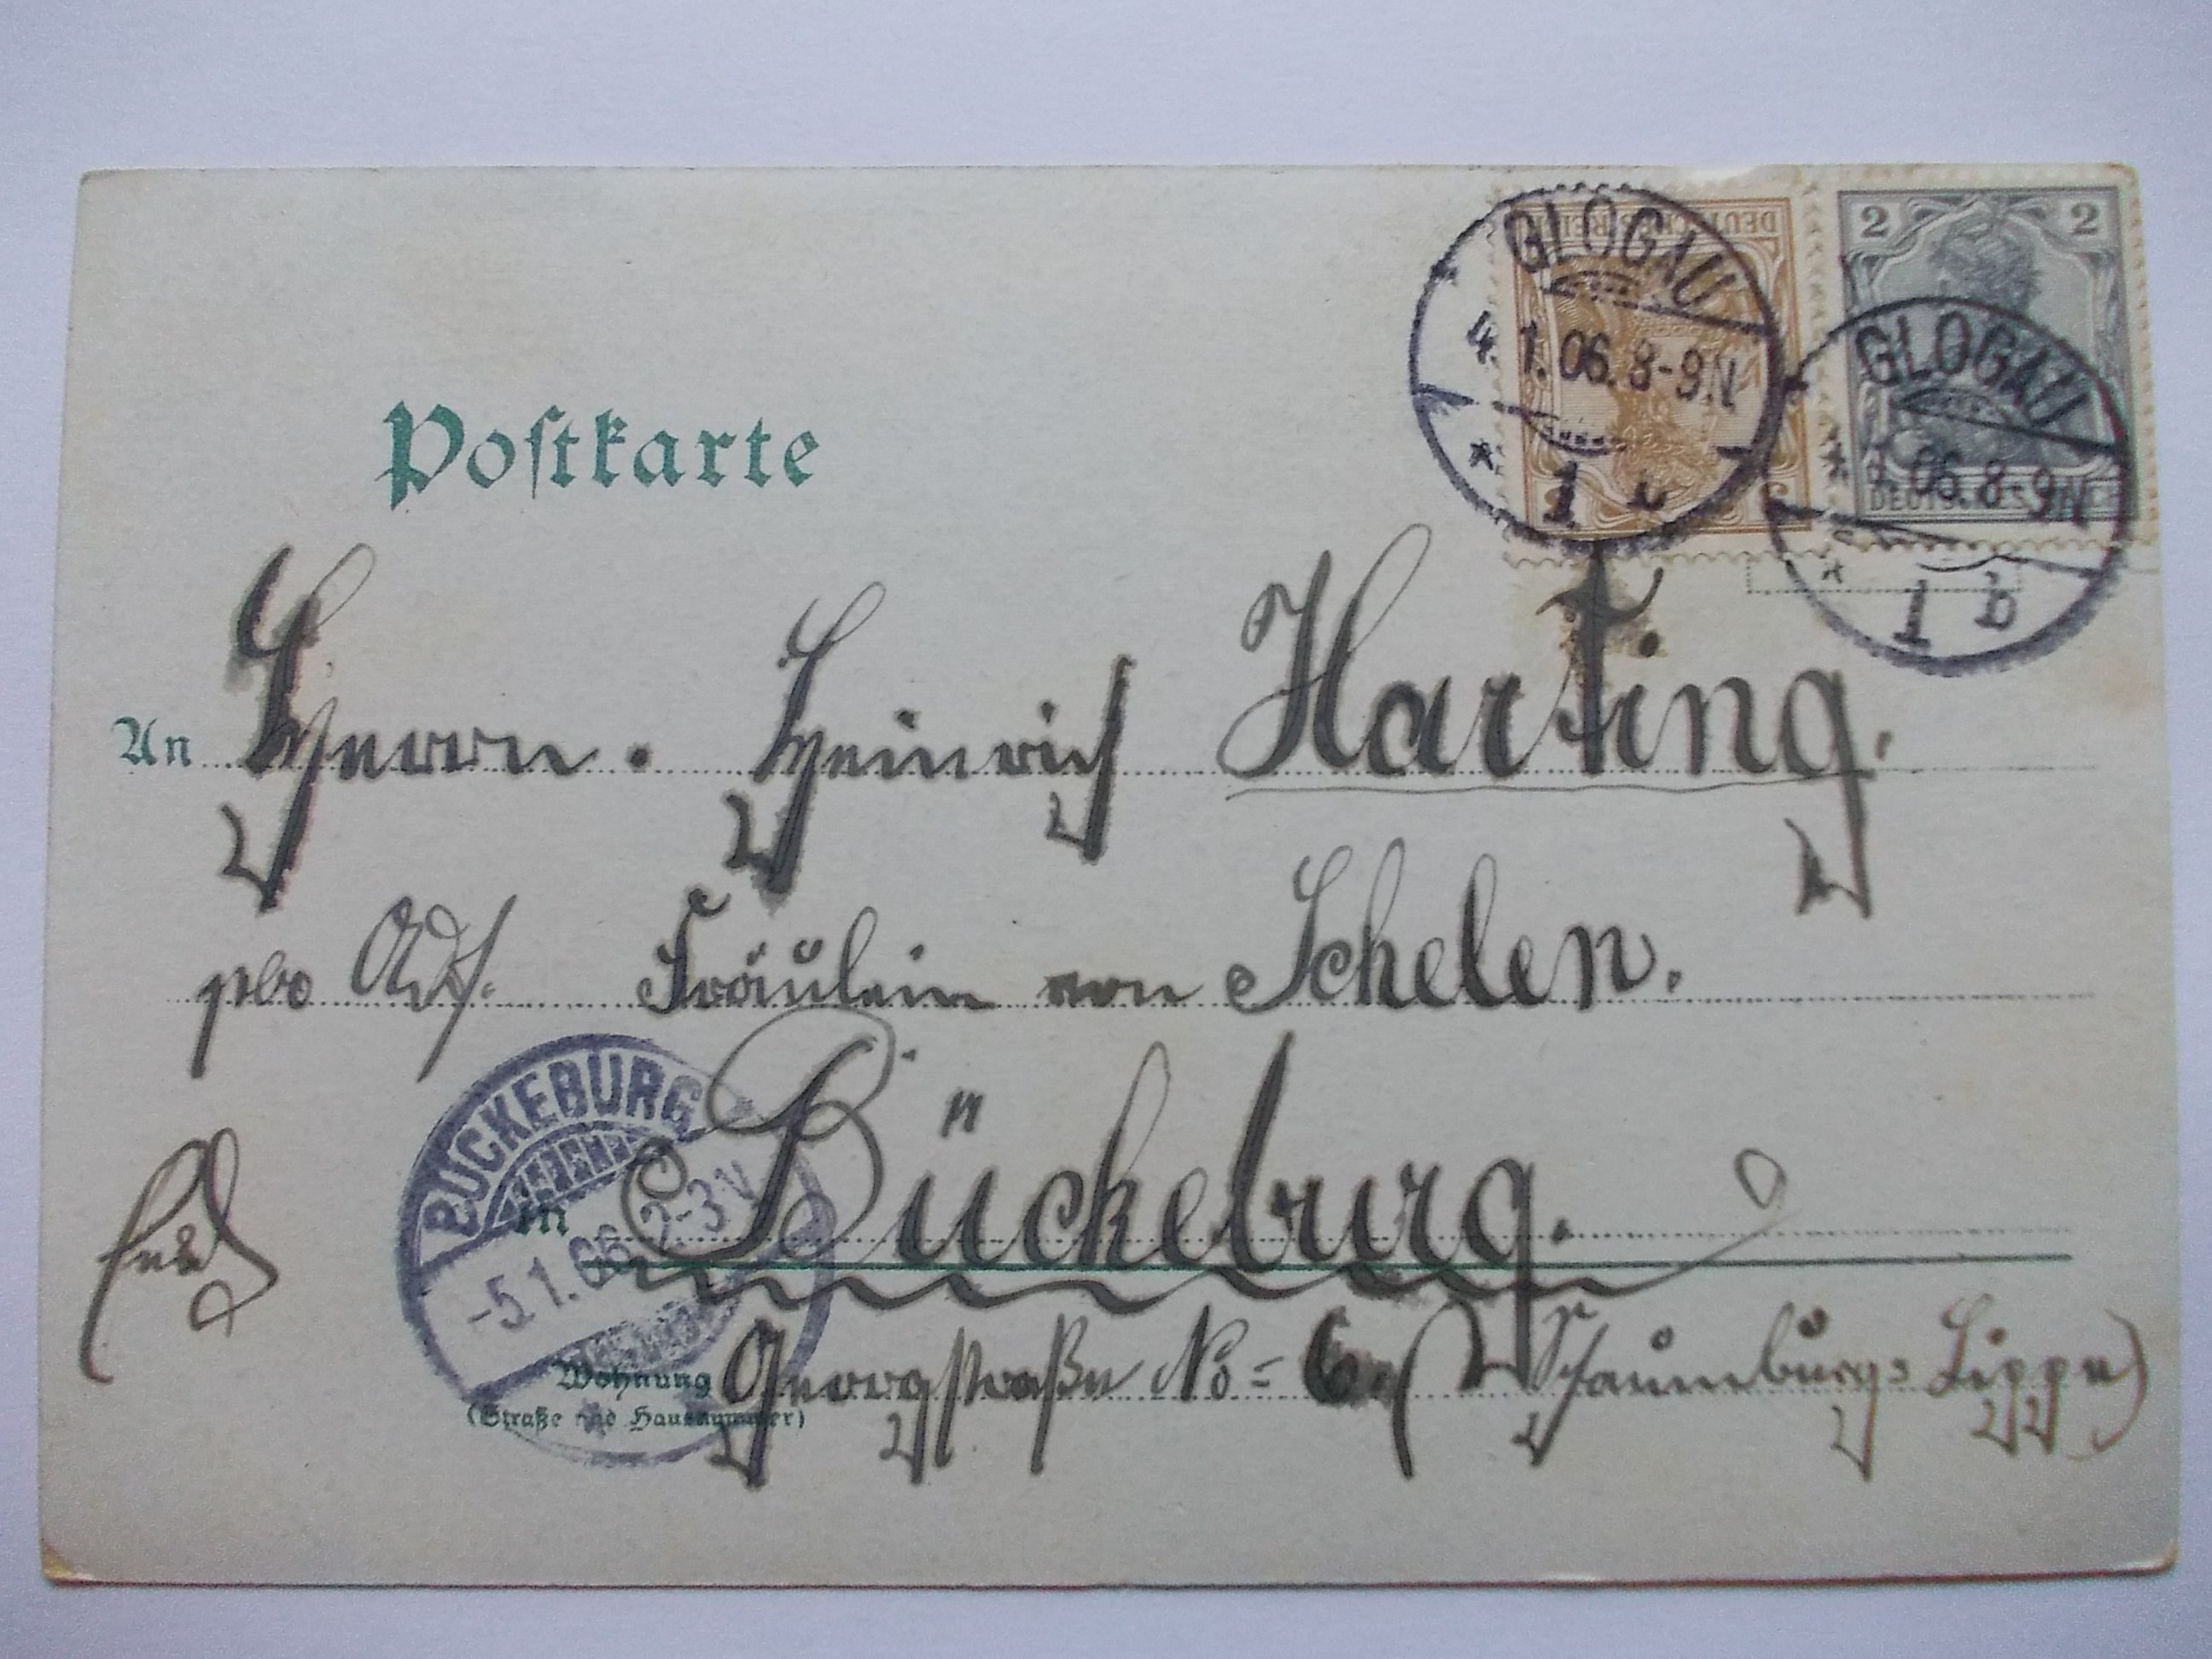 DEUTSCHES REICH
2 2
DEUTSCHES REICH
GLOGAU
4.1.06.8-9N
* 1 *
GLOGAU
1.06.8-9N
* 1 b
Postkarte
An Herrn. Heinrich Harting.
Adr. Fräulein von Schelen.
BÜCKEBURG
-5.1.06 2-3V
in Bückeburg.
Wohnung Georgstraße No= 6. (Schaumburg= Lippe)
(Straße und Hausnummer)